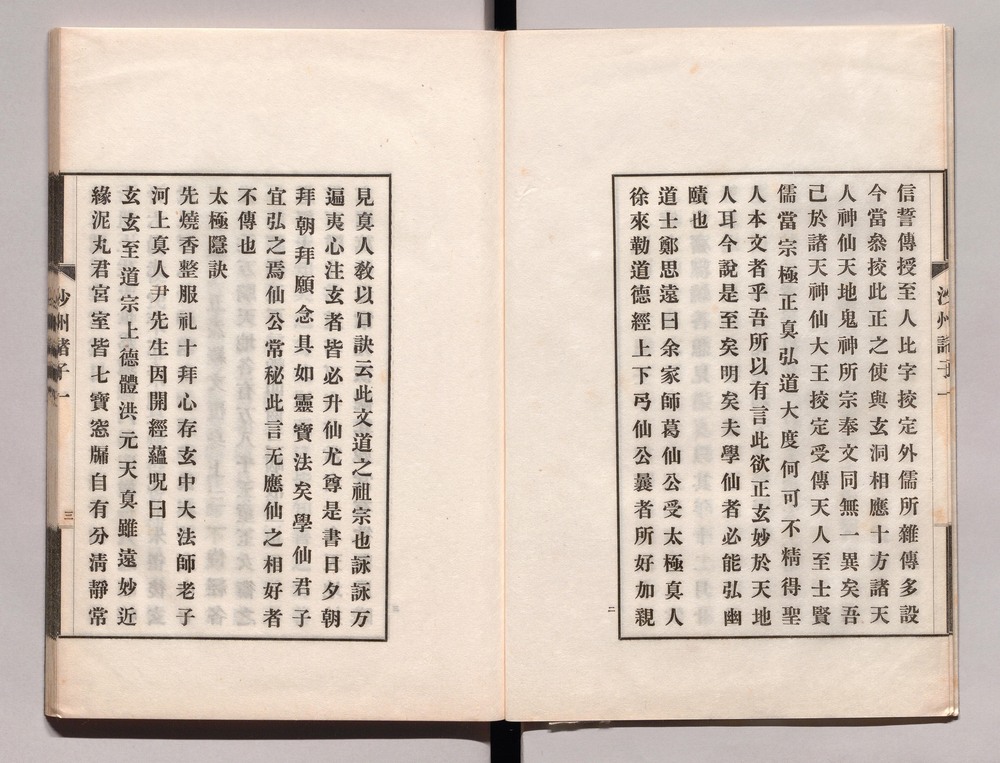 信誓傳授至人比字挍定外儒所雜傳多設
今當叅挍此正之使與玄洞相應十方諸天
人神仙天地鬼神所宗奉文同無一異矣吾
已於諸天神仙大王挍定受傳天人至士賢
儒當宗極正真弘道大度何可不精得聖
人本文者乎吾所以有言此欲正玄妙於天地
人耳今說是至矣明矣夫學仙者必能弘幽
賾也
道士鄭思遠曰余家師葛仙公受太極真人
徐來勒道德經上下弓仙公曩者所好加親
二
見真人教以口訣云此文道之祖宗也詠詠万
遍夷心注玄者皆必升仙尤尊是書日夕朝
拜朝拜願念具如靈寶法矣學仙君子
宜弘之焉仙公常秘此言无應仙之相好者
不傳也
太極隱訣
先燒香整服礼十拜心存玄中大法師老子
河上真人尹先生因開經蘊呪曰
玄玄至道宗上德體洪元天真雖遠妙近
緣泥丸君宮室皆七寶窓牖自有分清靜常
沙州諸子一
三